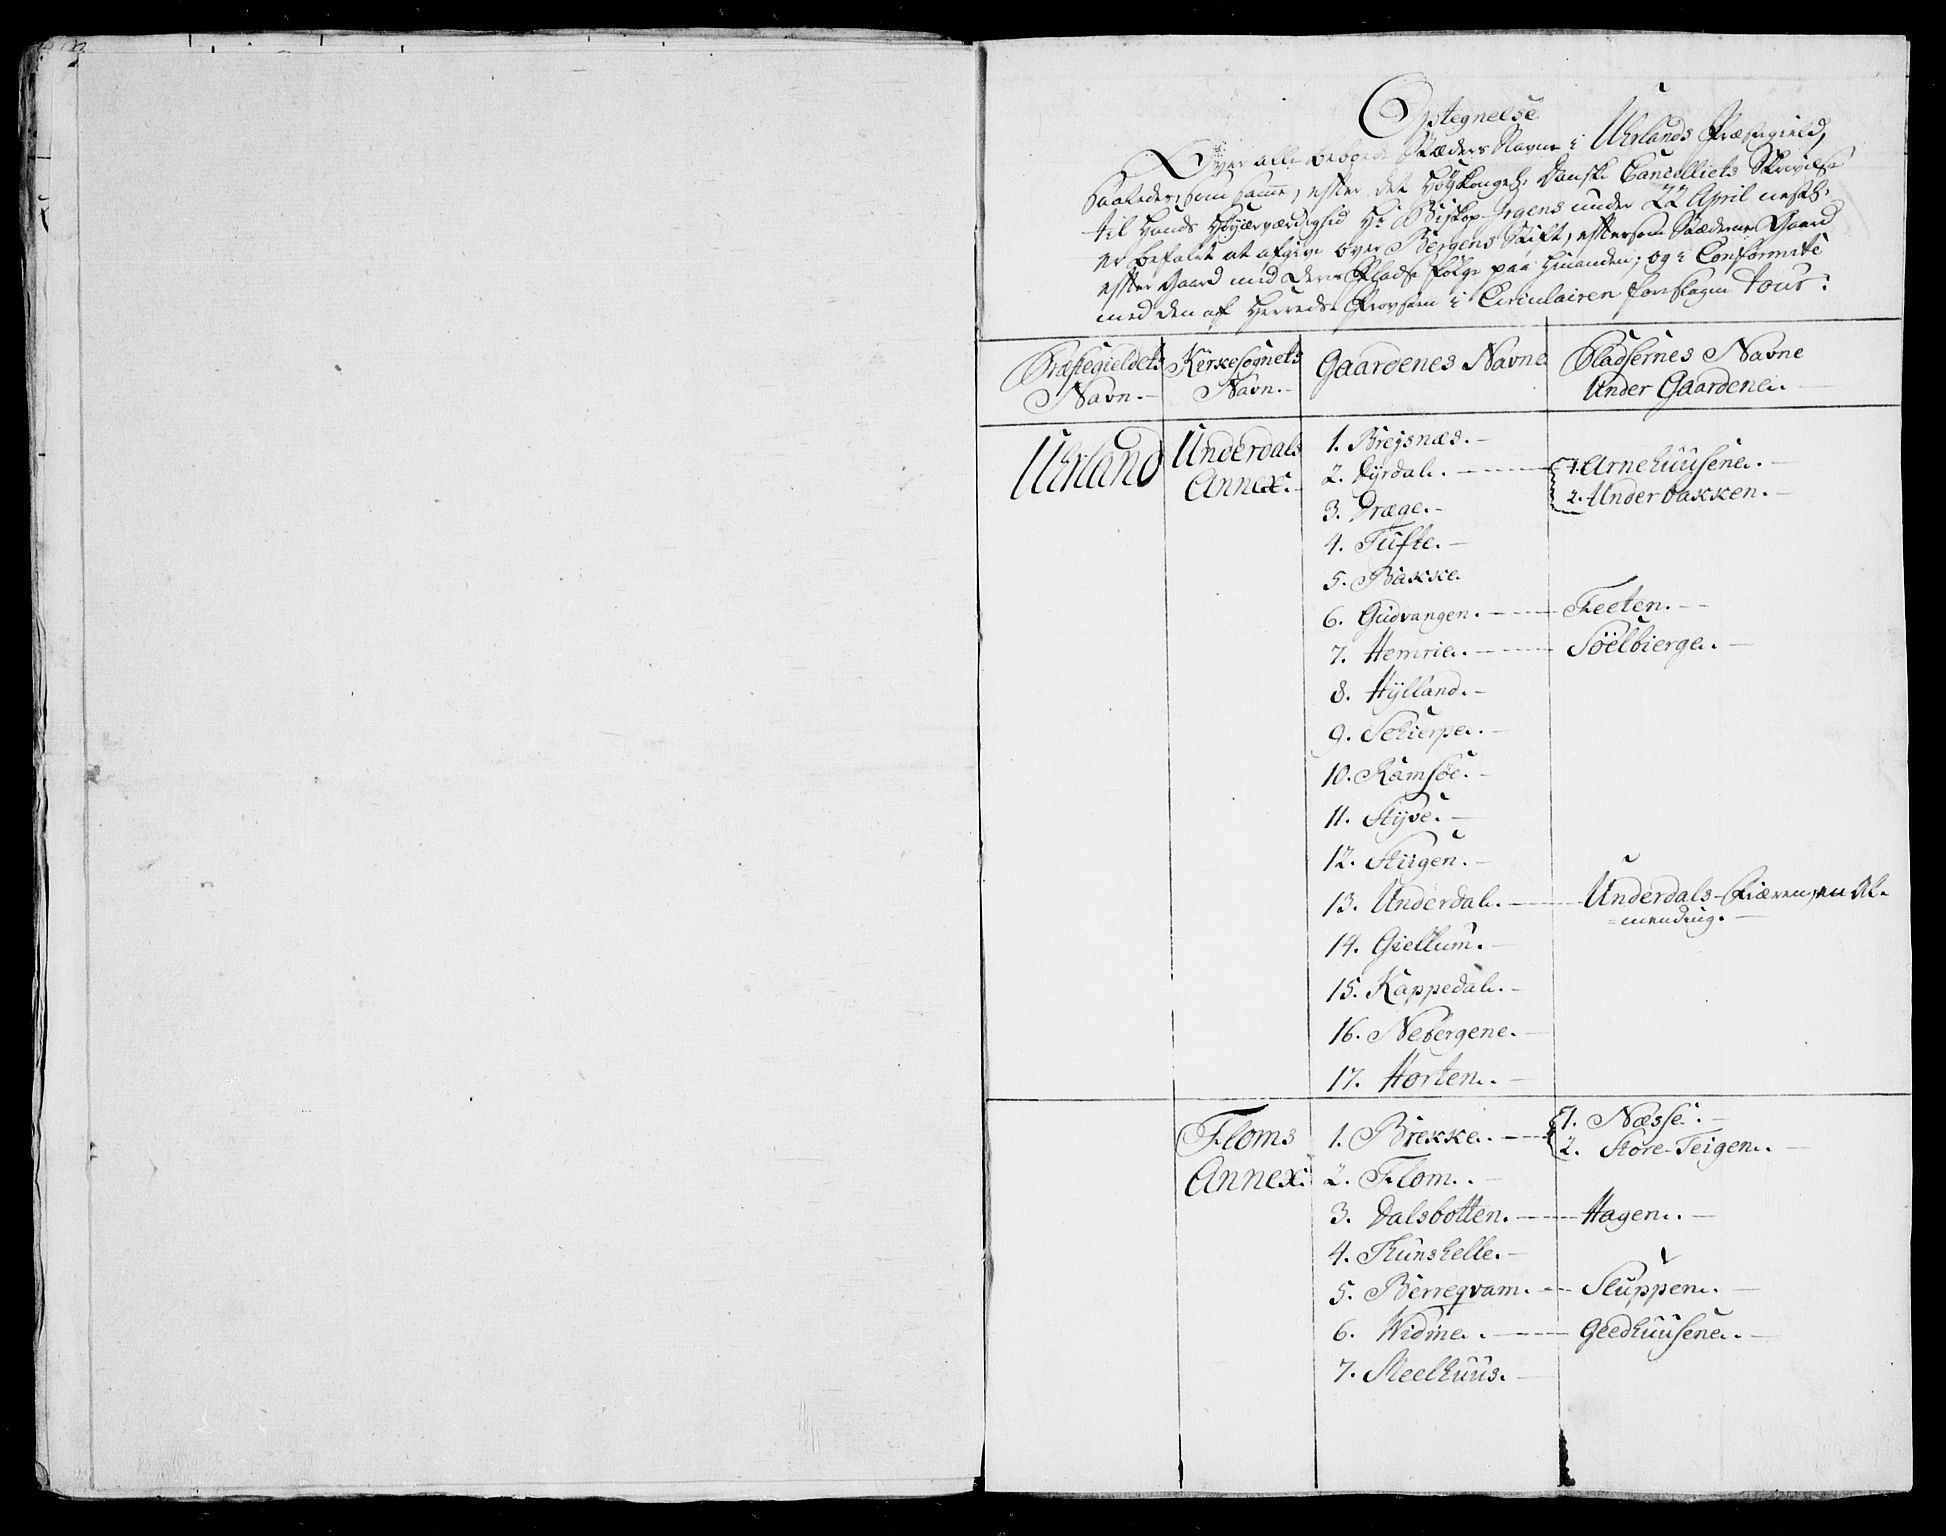 Optegnelse
Over alle beboede Stæders Navne i Uhrlands Præstegield,
saaledes, som samme, efter det Høykongel. Danske Cancelliets Skrivelse
til Hands Høyærværdighed Hr Biskop Irgens under 22 April nestl.
er befalet at afgive over Bergens Stift, eftersom Stæderne Gaard
efter Gaard med deres Pladse følge paa hinanden, og i Conformité
med den af Herreds-Provsten i Circulairen foreslagne tour:
Præstegieldets Kirkesognets Gaardenes Navne Pladsernes Navne
Navn. Navn. Under Gaardene.
Uhrland Underdals 1. Brejsnæs.
Annex. 2. Dyrdal. 1. Arnehuusene.
2. Underbakken.
3. Dræge.
4. Tufte.
5. Bakke.
6. Gudvangen. Feeten.
7. Hemrie. Söelbierge.
8. Hylland.
9. Schierpe.
10. Ramsöe.
11. Styve.
12. Stiigen.
13. Underdal. Underdals-Kiæren, en Al-
=mending.
14. Giellum.
15. Kappedal.
16. Nebergene.
17. Horten.
Floms 1. Brekke. 1. Næsse.
2. Store-Teigen.
Annex: 2. Flom.
3. Dalsbotten. Hagen.
4. Thunshelle.
5. Berreqvam. Sluppen.
6. Widme. Geedhuusene.
7. Steelhuus.